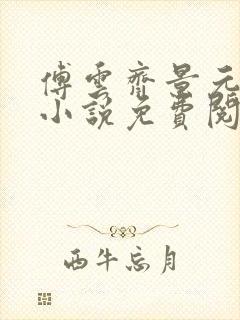 傅雲齊景元
小說免費閱
西牛忘月